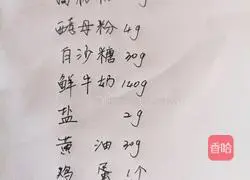 酵母粉 4g
白沙糖 30g
鲜牛奶 140g
盐 2g
黄油 30g
鸡蛋 1个
香哈